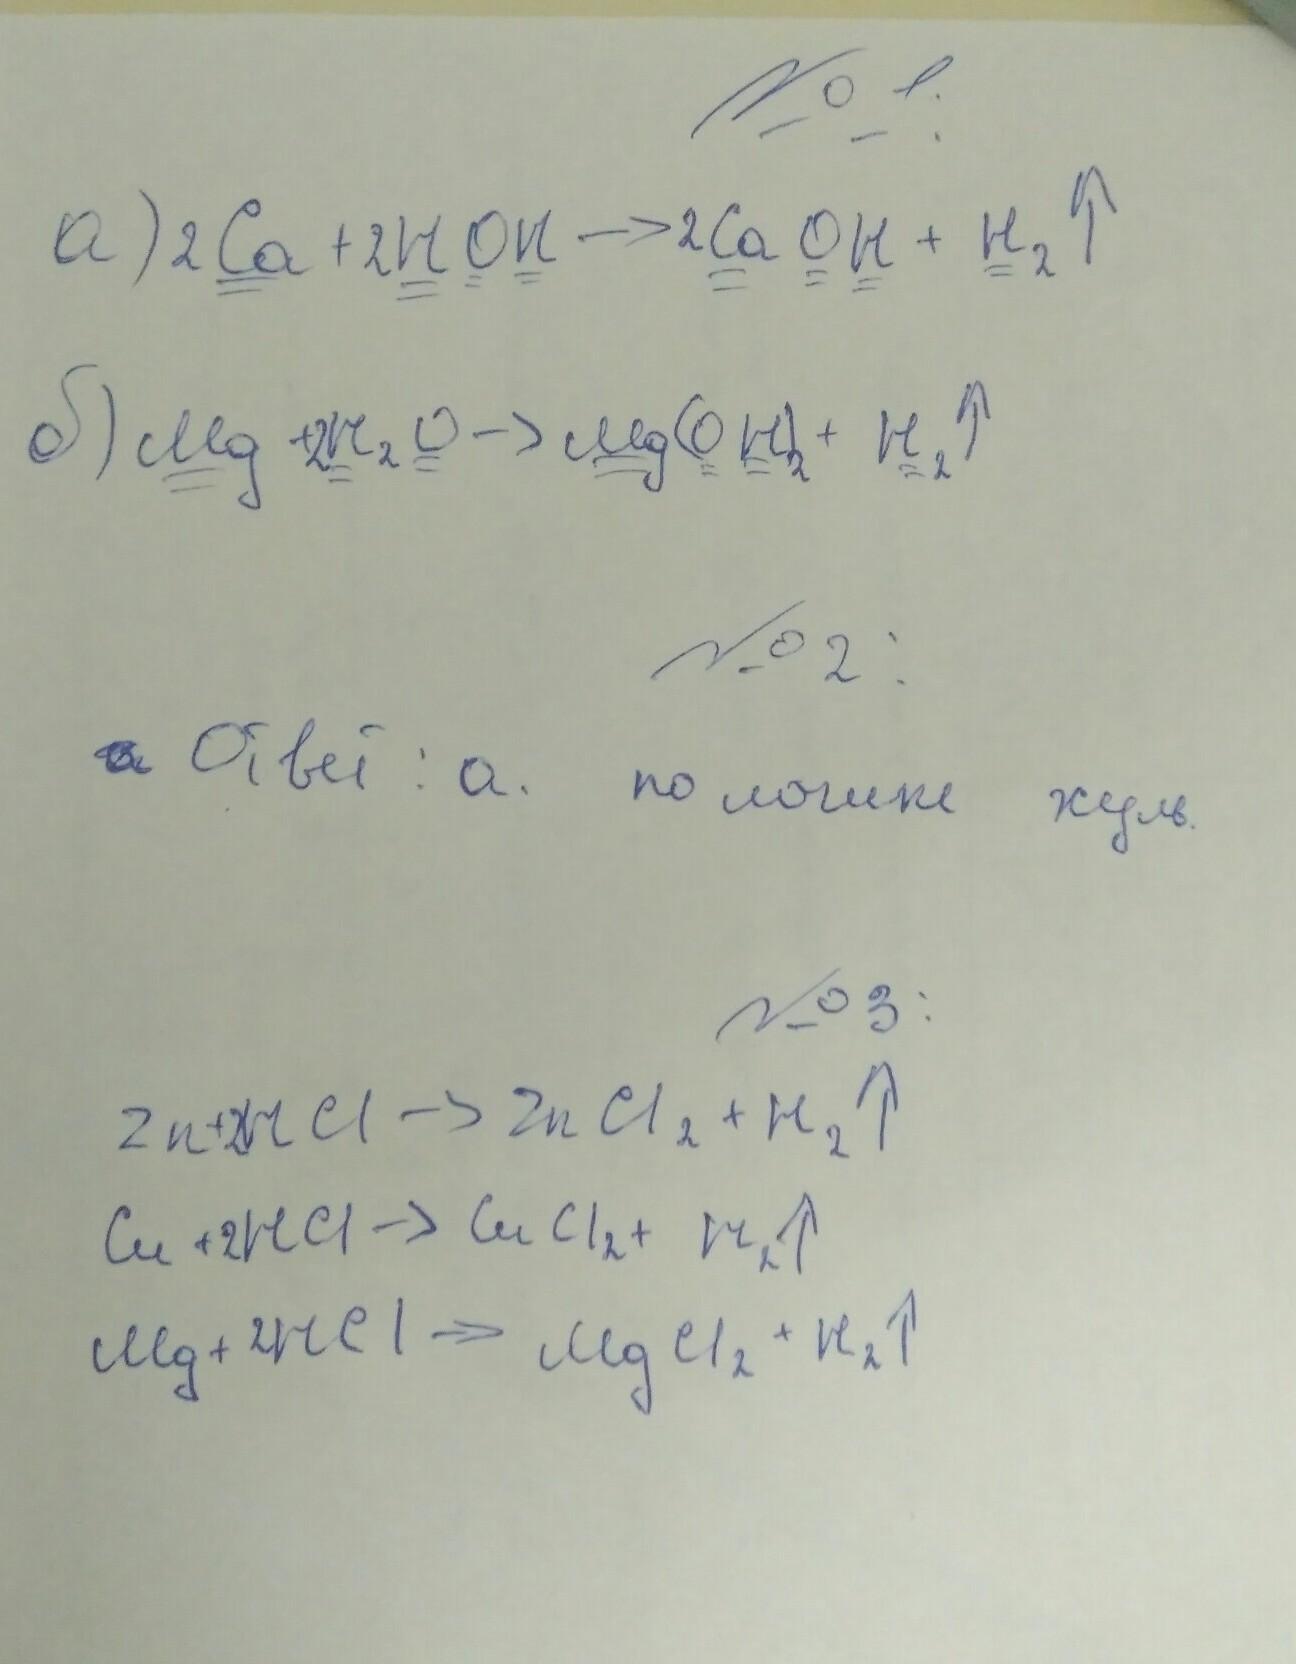 № 1:
а) 2Ca + 2HOH → 2CaOH + H₂↑
б) Mg + 2H₂O → Mg(OH)₂ + H₂↑
№ 2:
Ответ: а. по логике
№ 3:
Zn + 2HCl → ZnCl₂ + H₂↑
Cu + 2HCl → CuCl₂ + H₂↑
Mg + 2HCl → MgCl₂ + H₂↑